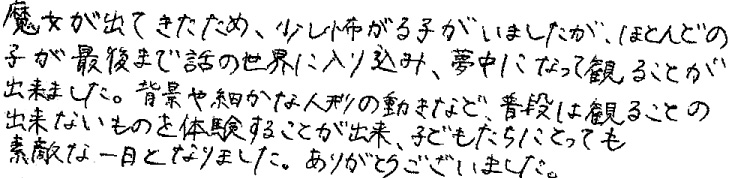 魔女が出てきたため、少し怖がる子がいましたが、ほとんどの
子が最後まで話の世界に入り込み、夢中になって観ることが
出来ました。背景や細かな人形の動きなど、普段は観ることの
出来ないものを体験することが出来、子どもたちにとっても
素敵な一日となりました。ありがとうございました。